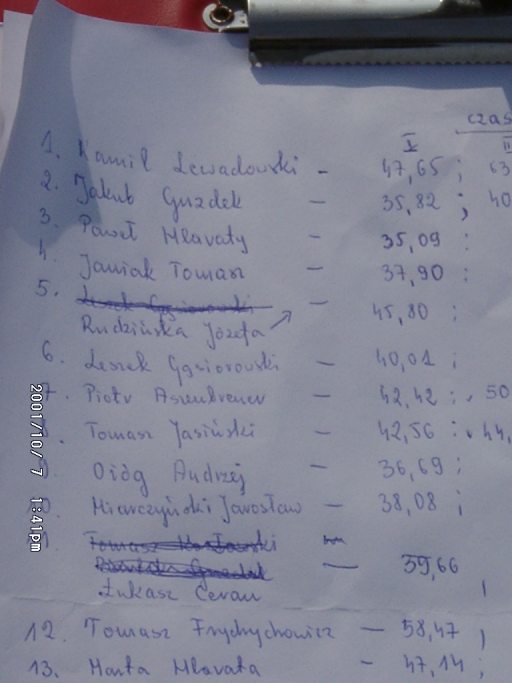 czas
I II
1. Kamil Lewadowski - 47,65 ; 63
2. Jakub Guzdek - 35,82 ; 40
3. Paweł Hlavaty - 35,09 :
4. Janiak Tomasz - 37,90 :
5. Leszek Gąsiorowski -
Rudzińska Józefa 45,80 ;
6. Leszek Gąsiorowski - 40,01 ;
7. Piotr - 42,42 ; 50
8. Tomasz Jasiński - 42,56 : 44,
9. Ożóg Andrzej - 36,69 ;
Miarczyński Jarosław - 38,08 ;
Tomasz
Guzdek - 39,66
Łukasz Ceran
12. Tomasz Frychychowicz - 58,47 ;
13. Marta Hlavata - 47,14 ;
2001/10/ 7 1:41pm